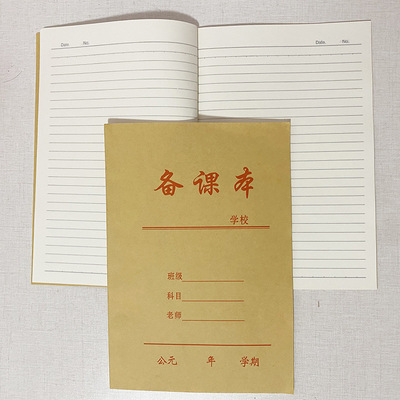 Date. No.
Date. No.
备课本
学校
班级
科目
老师
公元 年 学期